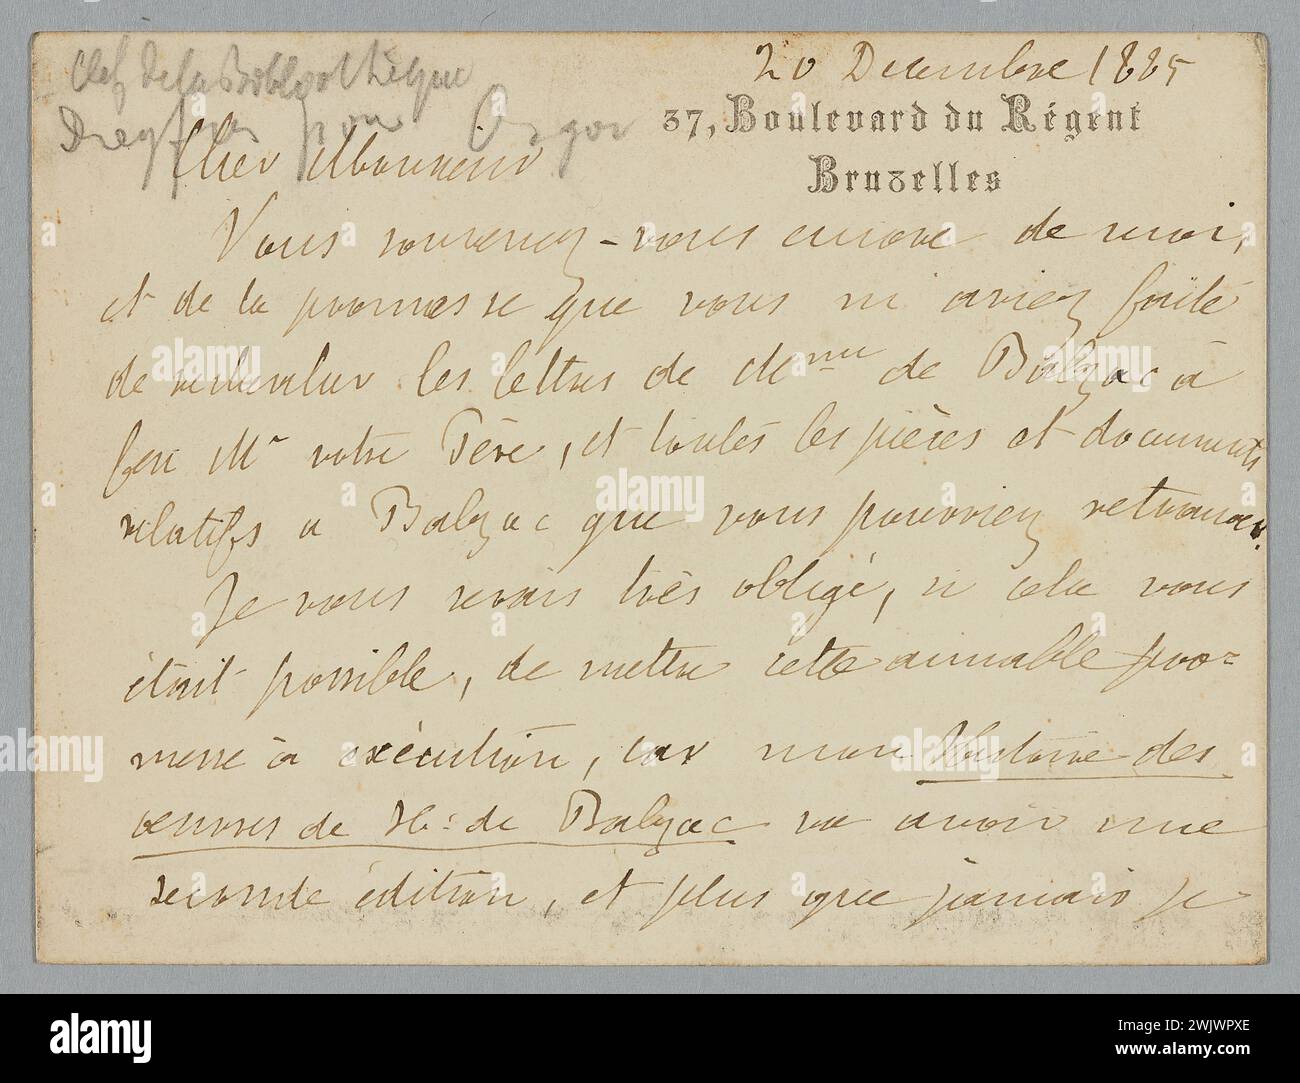 clef de la Bibliothèque
Dreyfus pour
20 Decembre 1885
37, Boulevard du Régent
Bruxelles
Cher Monsieur
Vous souvenez-vous encore de moi,
et de la promesse que vous m'aviez faite
de rechercher les lettres de Mme de Balzac à
feu Mr votre Père, et toutes les pièces et documents
relatifs a Balzac que vous pourriez retrouver.
Je vous serais très obligé, si cela vous
était possible, de mettre cette aimable pro=
messe à exécution, car mon Histoire des
œuvres de H. de Balzac va avoir une
seconde édition, et plus que jamais je
alamy
Image ID: 2WJWPXE
www.alamy.com